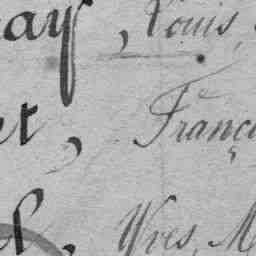 ay, Louis,
et, Franç
l, Yves, M